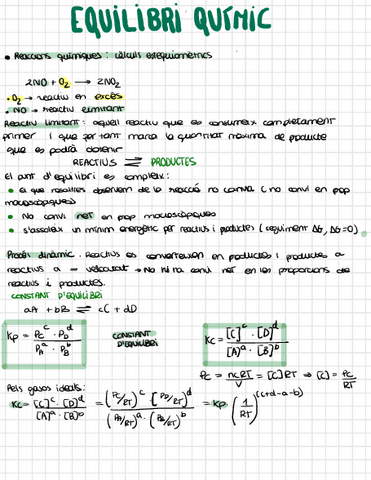 EQUILIBRI QUÍMIC
• Reaccions químiques: càlculs estequiomètrics
2NO + O₂ → 2NO₂
• O₂ → reactiu en excés
• NO → reactiu limitant
Reactiu limitant: aquell reactiu que es consumeix completament
primer i que per tant marca la quantitat màxima de producte
que es podrà obtenir
REACTIUS ⇌ PRODUCTES
El punt d'equilibri es compleix:
• El que nosaltres observem de la reacció no canvia (no canvi en prop
macroscòpiques)
• No canvi net en prop macroscòpiques
• s'assoleix un mínim energètic per reactius i productes (seguiment ΔG, ΔG=0)
Procés dinàmic. Reactius es converteixen en productes i productes a
reactius a = velocitat → No hi ha canvi net en les proporcions de
reactius i productes.
CONSTANT D'EQUILIBRI
aA + bB ⇌ cC + dD
Kp = Pc^c · PD^d / PA^a · PB^b
CONSTANT
D'EQUILIBRI
Kc = [C]^c · [D]^d / [A]^a · [B]^b
Pc = ncRT / V = [C] RT ⇒ [C] = Pc / RT
Pels gasos ideals:
Kc = [C]^c · [D]^d / [A]^a · [B]^b = (Pc/RT)^c · (PD/RT)^d / (PA/RT)^a · (PB/RT)^b = Kp (1/RT)^(c+d-a-b)